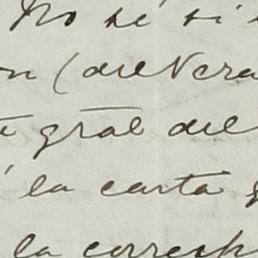 No sé si
on (del Vera
gral del
la carta
la corresp